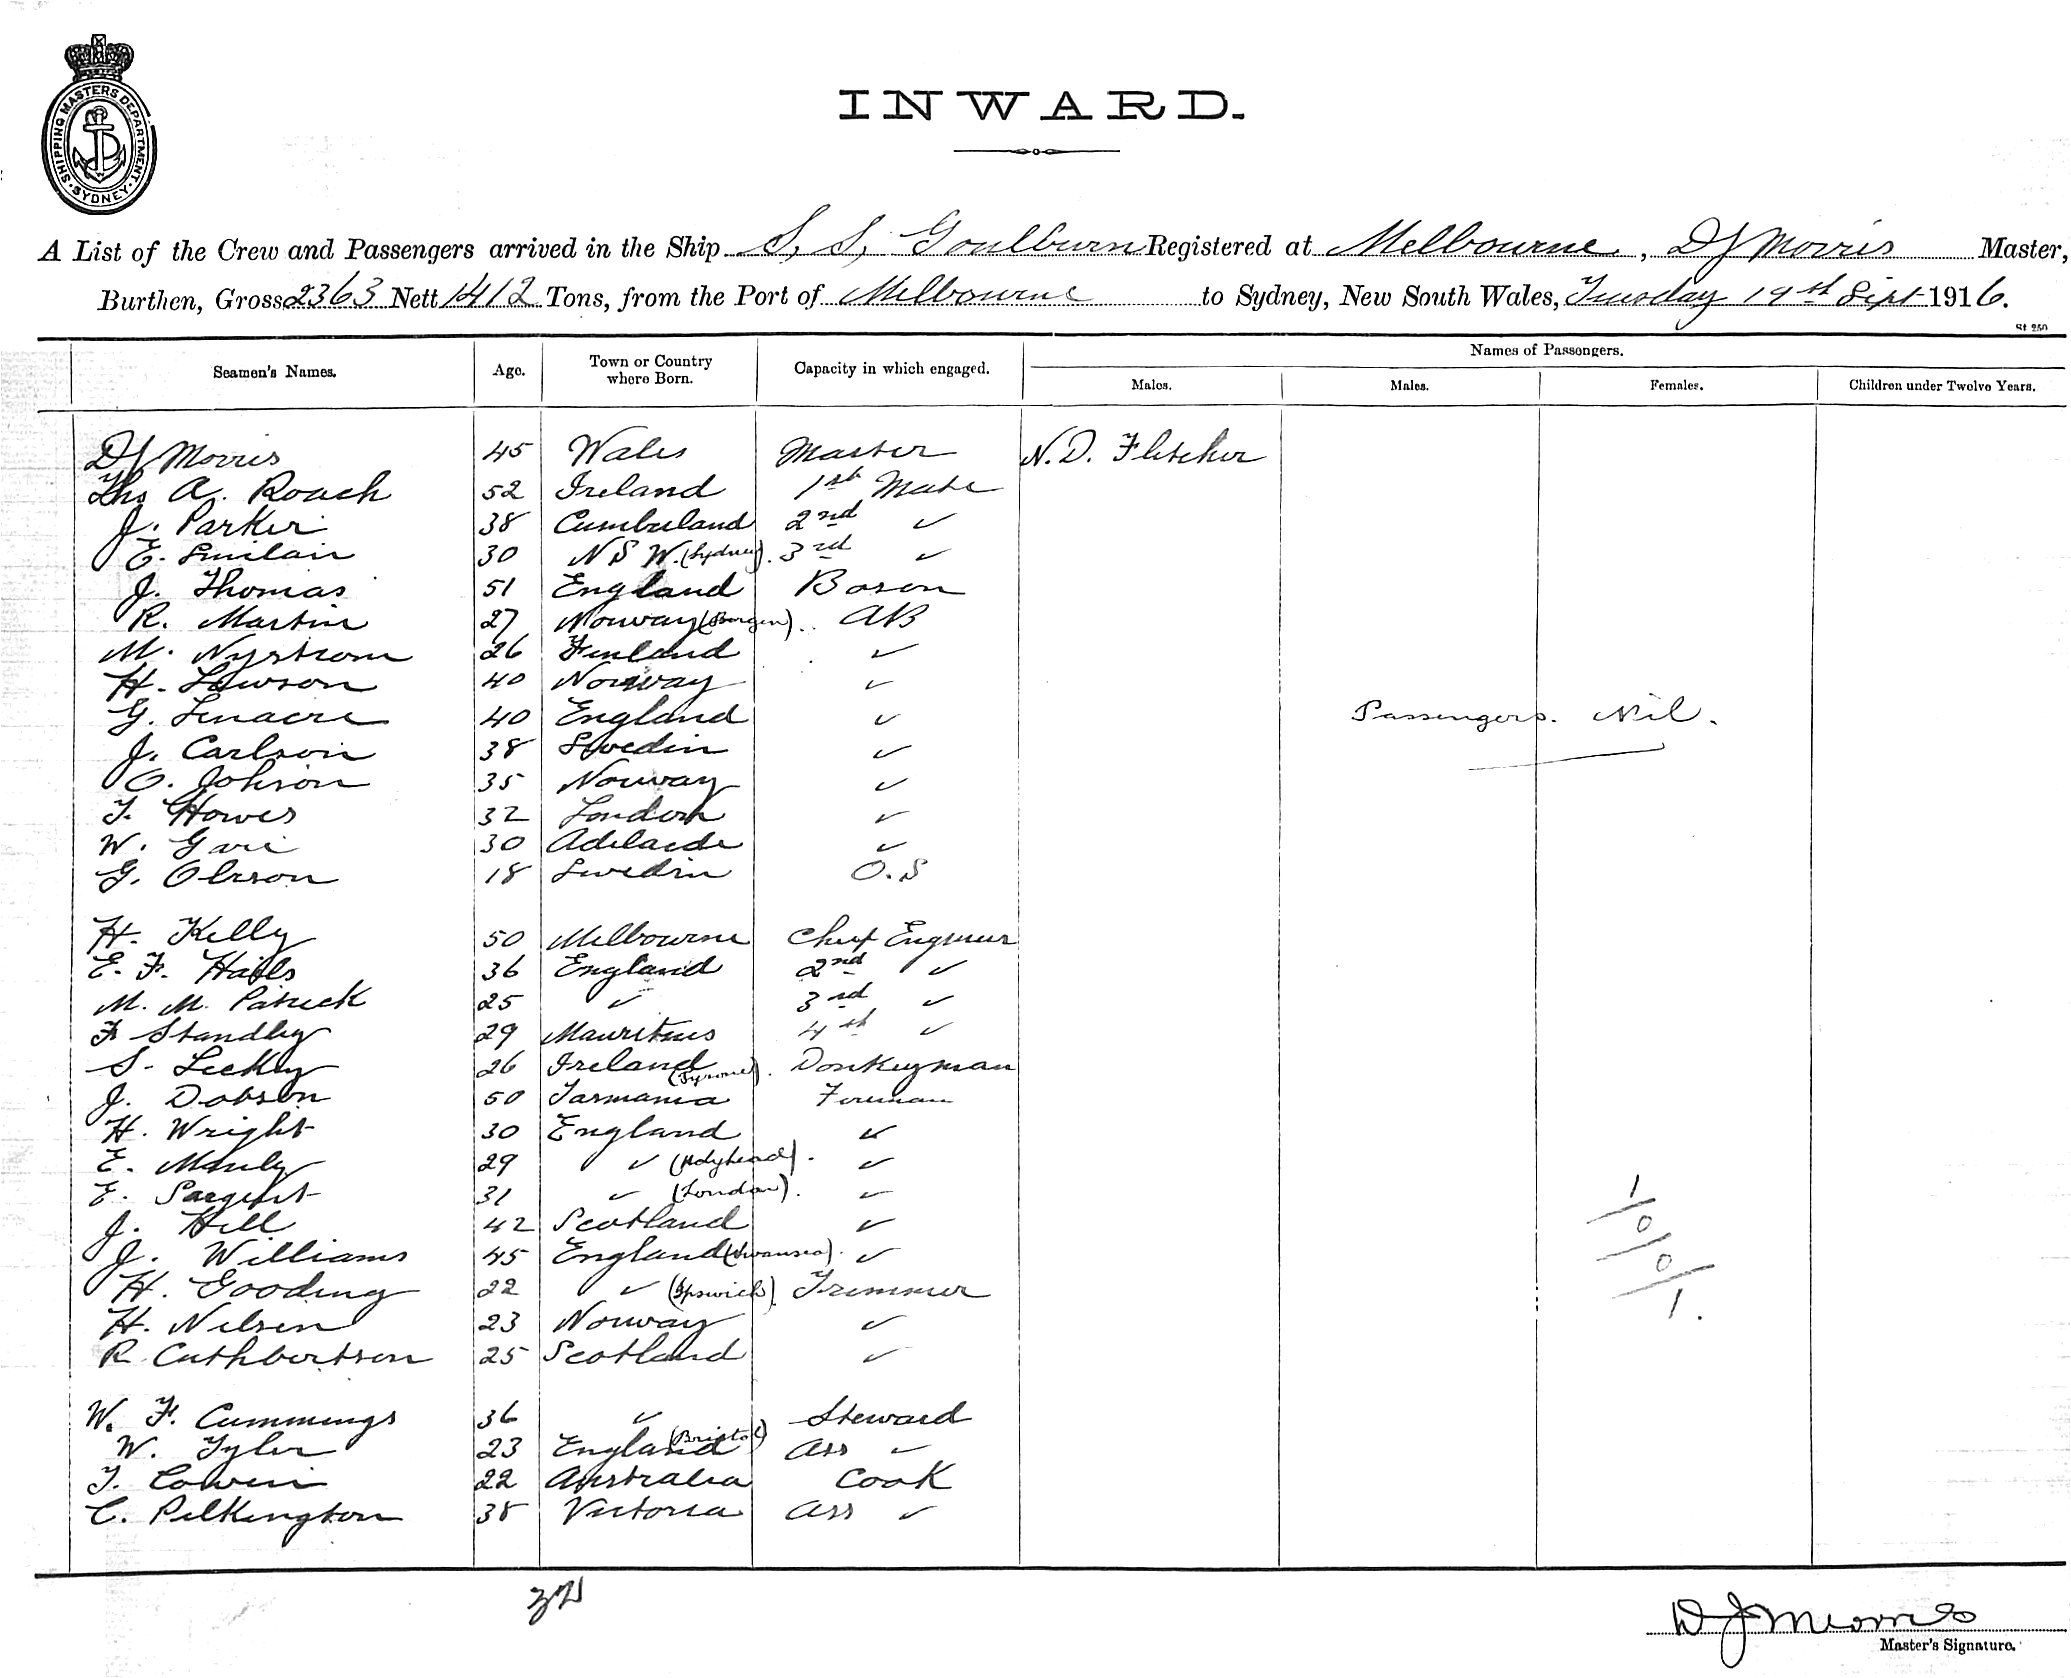 SHIPPING MASTERS DEPARTMENT. SYDNEY
INWARD.
A List of the Crew and Passengers arrived in the Ship S. S. Goulburn Registered at Melbourne, DJ Morris Master,
Burthen, Gross 2363 Nett 1412 Tons, from the Port of Melbourne to Sydney, New South Wales, Tuesday 19th Sept 1916.
St 250
Seamen's Names. Age. Town or Country where Born. Capacity in which engaged. Names of Passengers.
Males. Males. Females. Children under Twelve Years.
DJ Morris 45 Wales Master N. D. Fletcher
Ths A. Roach 52 Ireland 1st Mate
J. Parker 38 Cumberland 2nd ✓
E. Sinclair 30 N S W. (Sydney). 3rd ✓
J. Thomas 51 England Bosn
R. Martin 27 Norway (Bergen). AB
M. Nystrom 26 Finland ✓
H. Lawson 40 Norway ✓
G. Linacre 40 England ✓ Passengers. Nil.
J. Carlson 38 Sweden ✓
O. Johson 35 Norway ✓
T. Howes 32 London ✓
W. 30 Adelaide ✓
G. Olsson 18 Sweden O.S
H. Kelly 50 Melbourne Chief Engineer
E. F. Hails 36 England 2nd ✓
M. M. Patrick 25 ✓ 3rd ✓
F Standley 29 Mauritius 4th ✓
S. Lecky 26 Ireland (Tyrone). Donkeyman
J. Dobson 50 Tasmania Fireman
H. Wright 30 England ✓
E. Manly 29 ✓ (Holyhead). ✓
E. Sargent 31 ✓ (London). ✓
J. Hill 42 Scotland ✓
J. Williams 45 England (Swansea). ✓
H. Gooding 22 ✓ (Ipswich). Trimmer
H. Nilsen 23 Norway ✓
R. Cuthbertson 25 Scotland ✓
1
0
0
1.
W. F. Cummings 36 ✓ Steward
W. Tyler 23 England (Bristol) Ass ✓
T. Cowen 22 Australia Cook
C. Pilkington 38 Victoria Ass ✓
32
DJ Morris
Master's Signature.